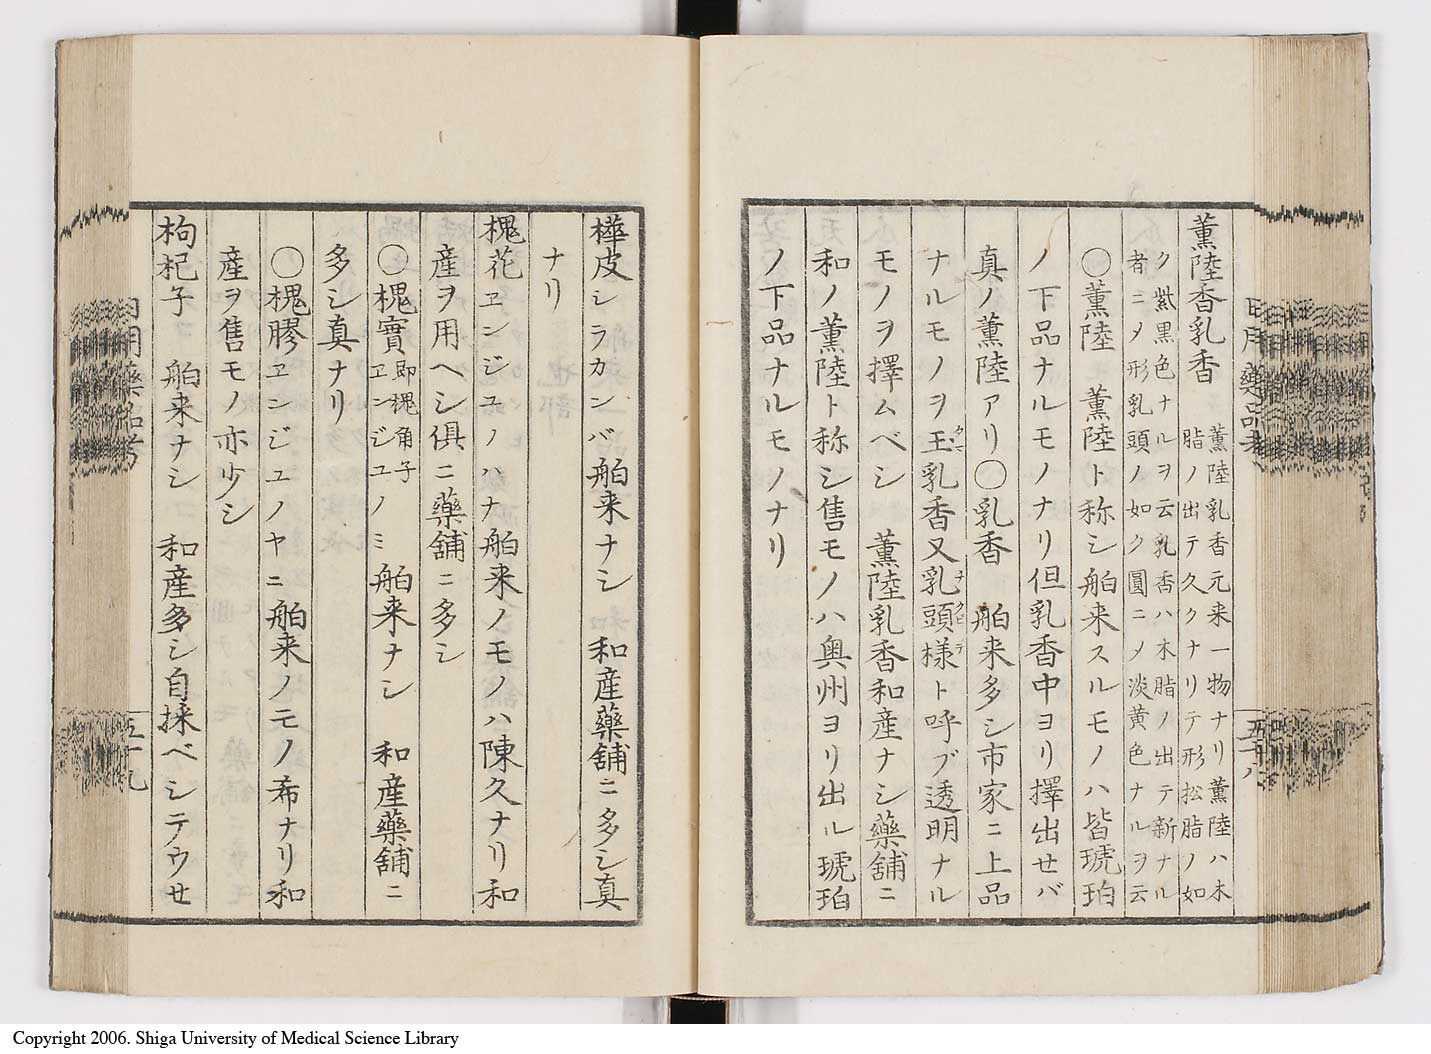 薫陸香乳香 薫陸乳香元来一物ナリ薫陸ハ木
脂ノ出テ久クナリテ形松脂ノ如
ク紫黒色ナルヲ云乳香ハ木脂ノ出テ新ナル
者ニヲ形乳頭ノ如ク圓ニノ淡黄色ナルヲ云
〇薫陸 薫陸ト称シ舶来スルモノハ皆琥珀
ノ下品ナルモノナリ但乳香中ヨリ擇出セバ
真ノ薫陸アリ〇乳香 舶来多シ市家ニ上品
ナルモノヲ玉乳香又乳頭様ト呼ブ透明ナル
モノヲ擇ムベシ 薫陸乳香和産ナシ藥舗ニ
和ノ薫陸ト称シ售モノハ奥州ヨリ出ル琥珀
ノ下品ナルモノナリ
日用藥品考
五十八
樺皮シラカンバ 舶来ナシ 和産藥舗ニ多シ真
ナリ
槐花ヱンジユノハナ 舶来ノモノハ陳久ナリ和
産ヲ用ヘシ倶ニ藥舗ニ多シ
〇槐實 即槐角子 ヱンジユノミ 舶来ナシ 和産藥舗ニ
多シ真ナリ
〇槐膠ヱンジユノヤニ 舶来ノモノ希ナリ和
産ヲ售モノ亦少シ
枸杞子 舶来ナシ 和産多シ自採ベシテウセ
五十九
Copyright 2006. Shiga University of Medical Science Library